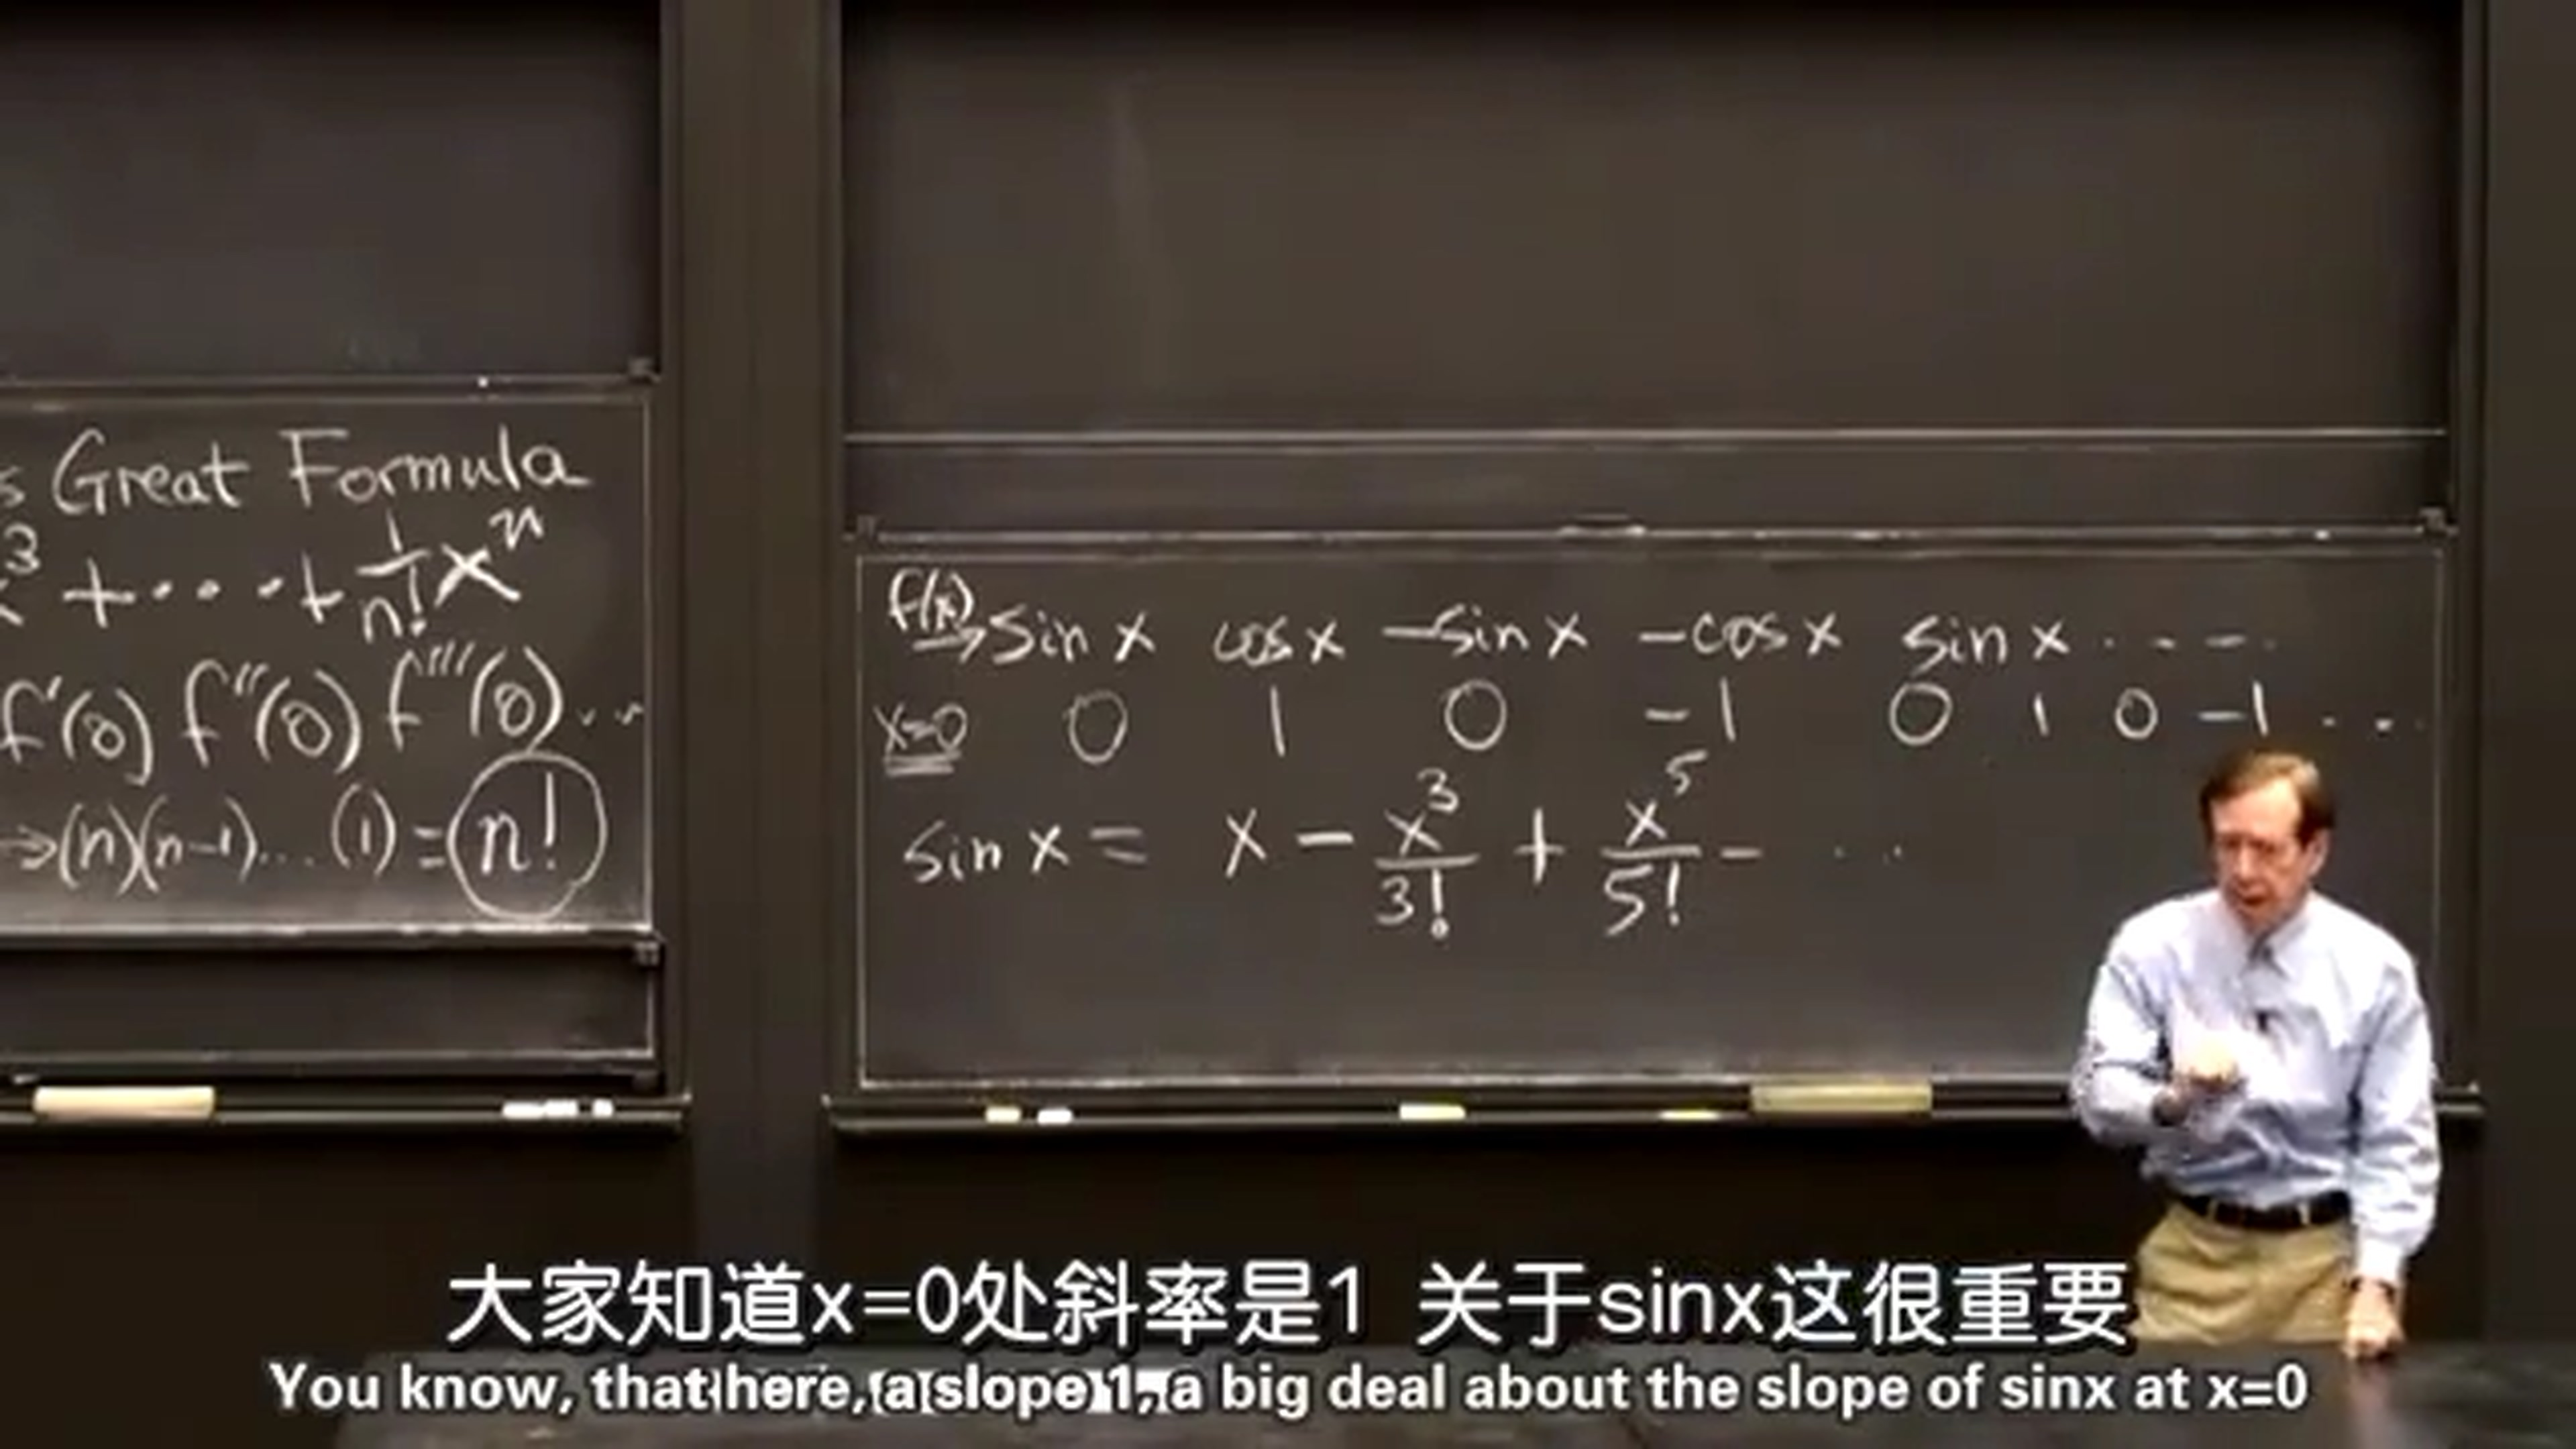 s Great Formula
x³ + ... + 1/n! xⁿ
f'(0) f''(0) f'''(0) ...
→(n)(n-1)... (1) = n!
f(x)
→ sin x cos x -sin x -cos x sin x ....
x=0 0 1 0 -1 0 1 0 -1 ...
sin x = x - x³/3! + x⁵/5! - ...
大家知道x=0处斜率是1 关于sinx这很重要
You know, that here, a slope 1, a big deal about the slope of sinx at x=0